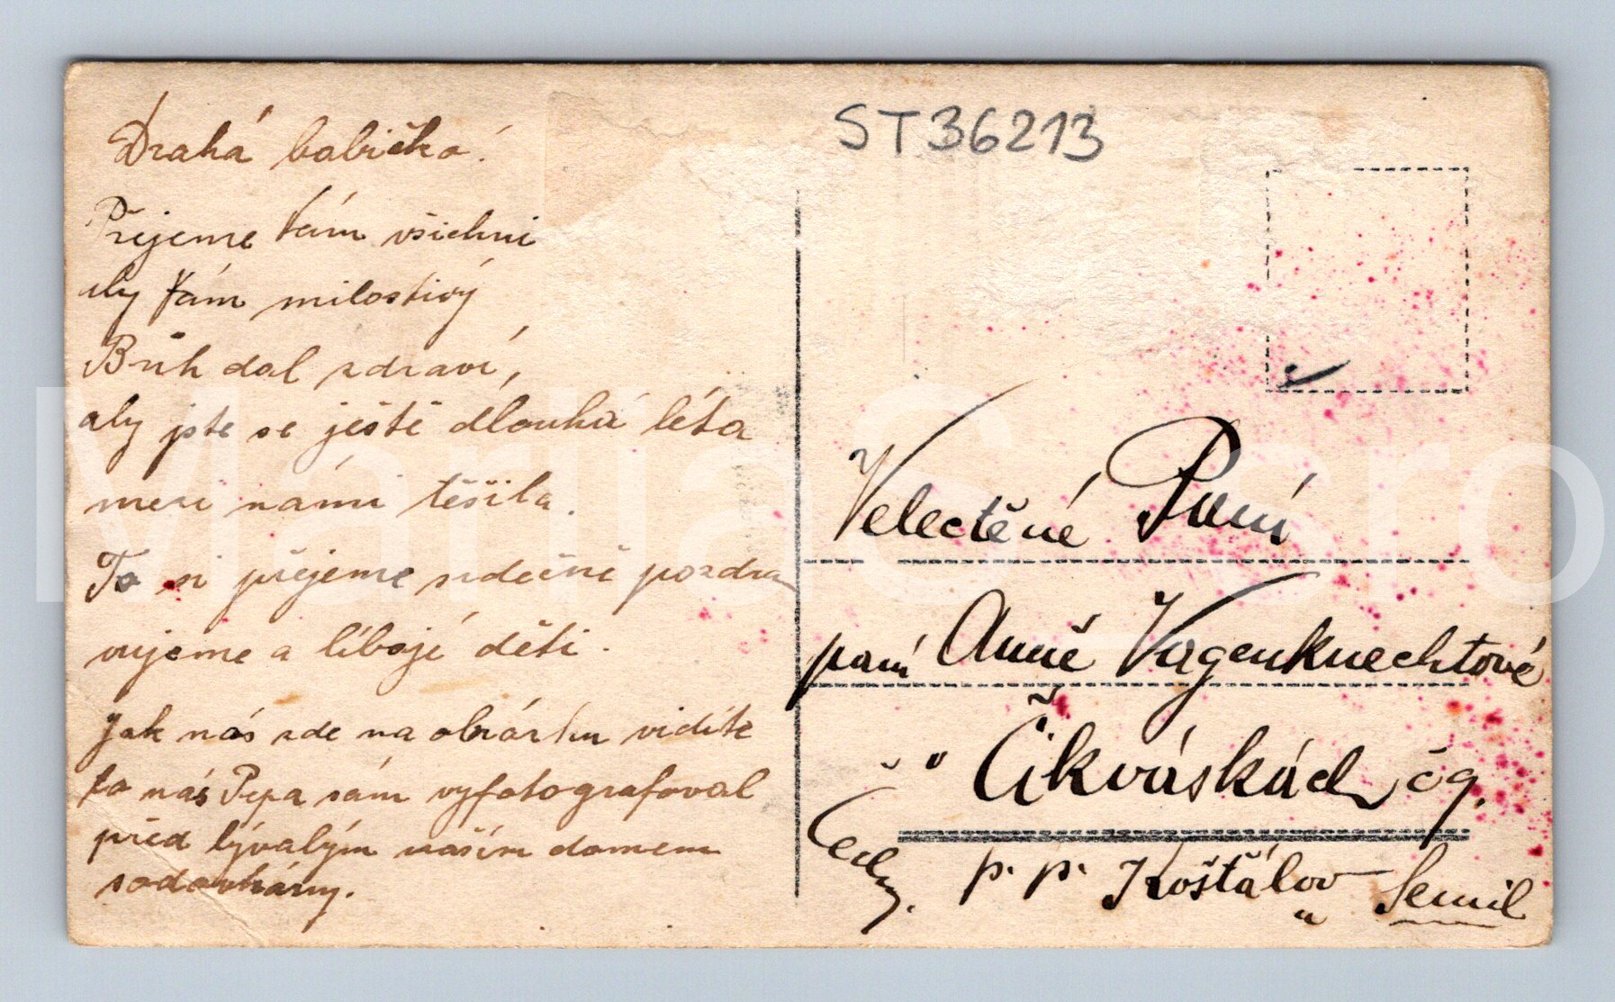 Drahá babičko!
Přejeme Vám všichni
aby Vám milostivý
Bůh dal zdraví,
aby jste se ještě dlouhá léta
mezi námi těšila.
To si přejeme srdečně pozdra
vujeme a líbají děti.
Jak nás zde na obrázku vidíte
to nás Pepa sám vyfotografoval
před bývalým naším domem
sodovkárny.
ST36213
Velectěné Paní
paní Anně Vagenknechtové
v Čikváskách čg.
p. p. Košťálov
Semil
Čechy.